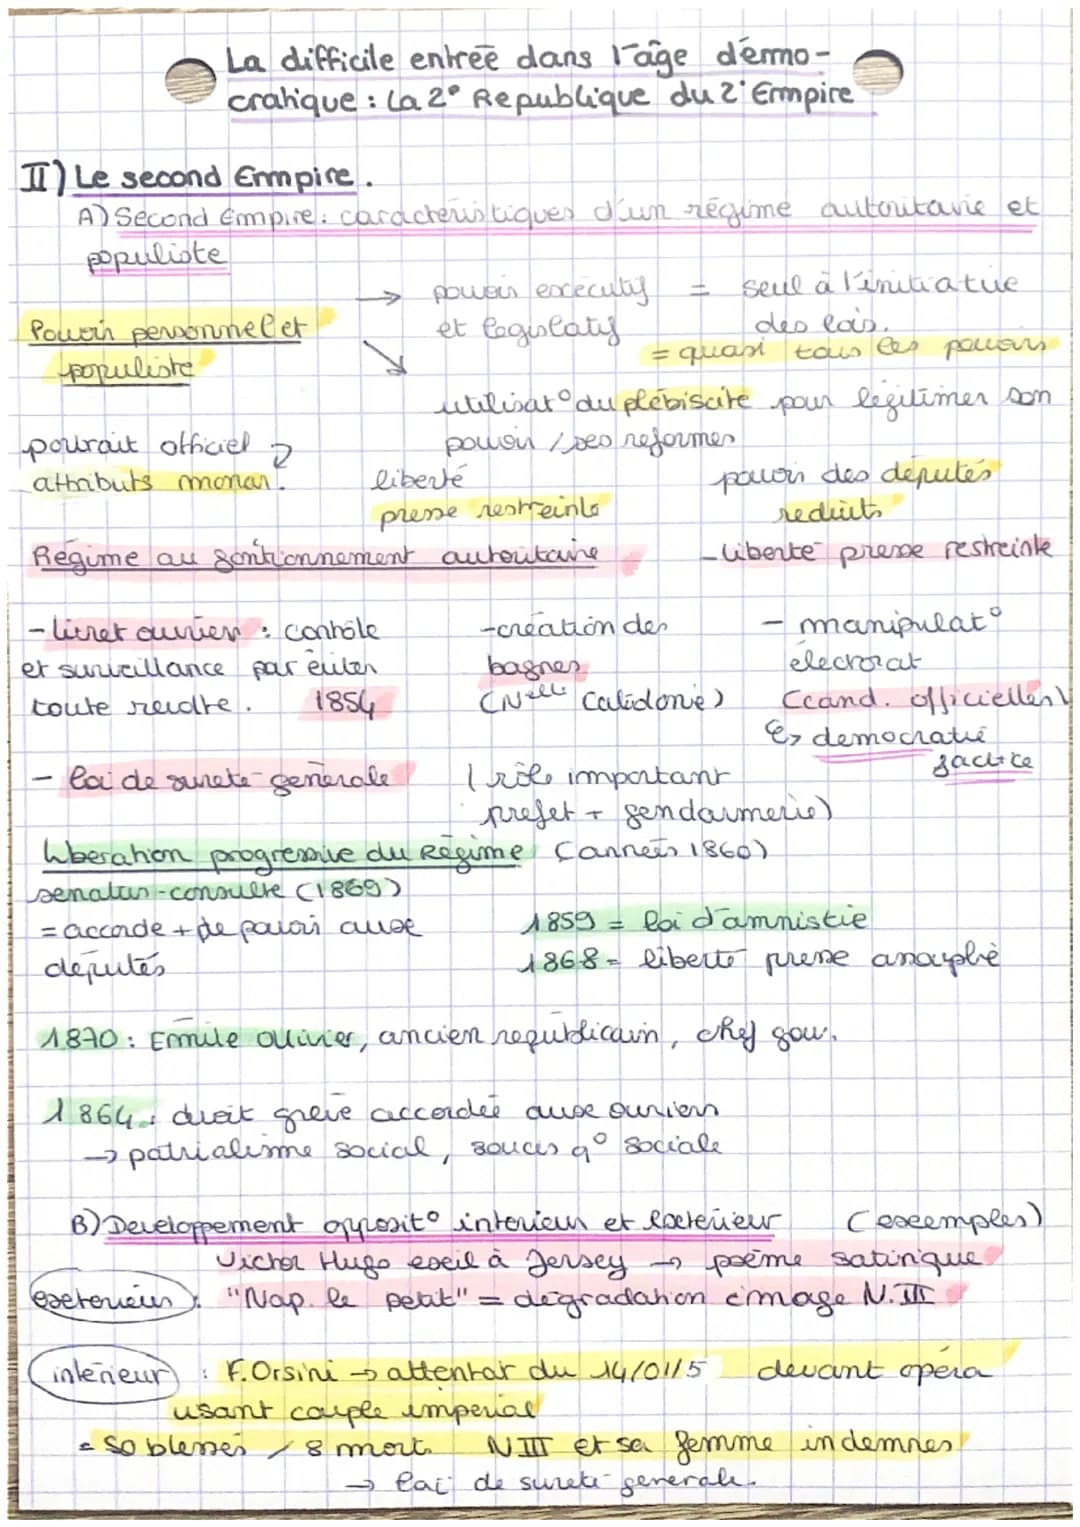 La difficile entrée dans l'âge démo-
cratique : La 2° Republique du 2° Empire
II) Le second Empire.
A) Second Empire: caractéristiques d'un régime autoritaire et
populiste
→ pouvoir executif = seul à l'initiative
Pouvoir personnel et et legislatif des lois.
populiste = quasi tous les pouvoirs
utilisat° du plébiscite pour légitimer son
pourait officiel pouvoir / ses reformes
attributs monar. liberté pouvoir des députés
presse restreinte reduits
Régime au fontionnement autoritaire - liberté presse restreinte
- livret ouvrier : contrôle - création des - manipulat°
et surveillance par éviter bagnes électorat
toute révolte. 1854 (Nelle Calédonie) (cand. officielles)
↳ democratie
factice
- loi de sureté générale ( rôle important
prefet + gendarmerie)
liberation progressive du Régime (années 1860)
senatus-consulte (1869)
= accorde + de pouvoir aux 1859 = loi d'amnistie
députés 1868 = liberté presse
1870 : Emile Ollivier, ancien republicain, chef gouv.
1864 : droit grève accordée aux ouvriers
→ patrialisme social, soucis q° sociale
B) Developpement opposit° interieur et exterieur (exemples)
Victor Hugo exil à Jersey → poème satirique
exterieur : "Nap. le petit" = dégradation image N.III
intérieur : F.Orsini → attentat du 14/01/5 devant opéra
visant couple imperial
= 50 blessés / 8 mort NIII et sa femme indemnes
→ loi de sureté generale.